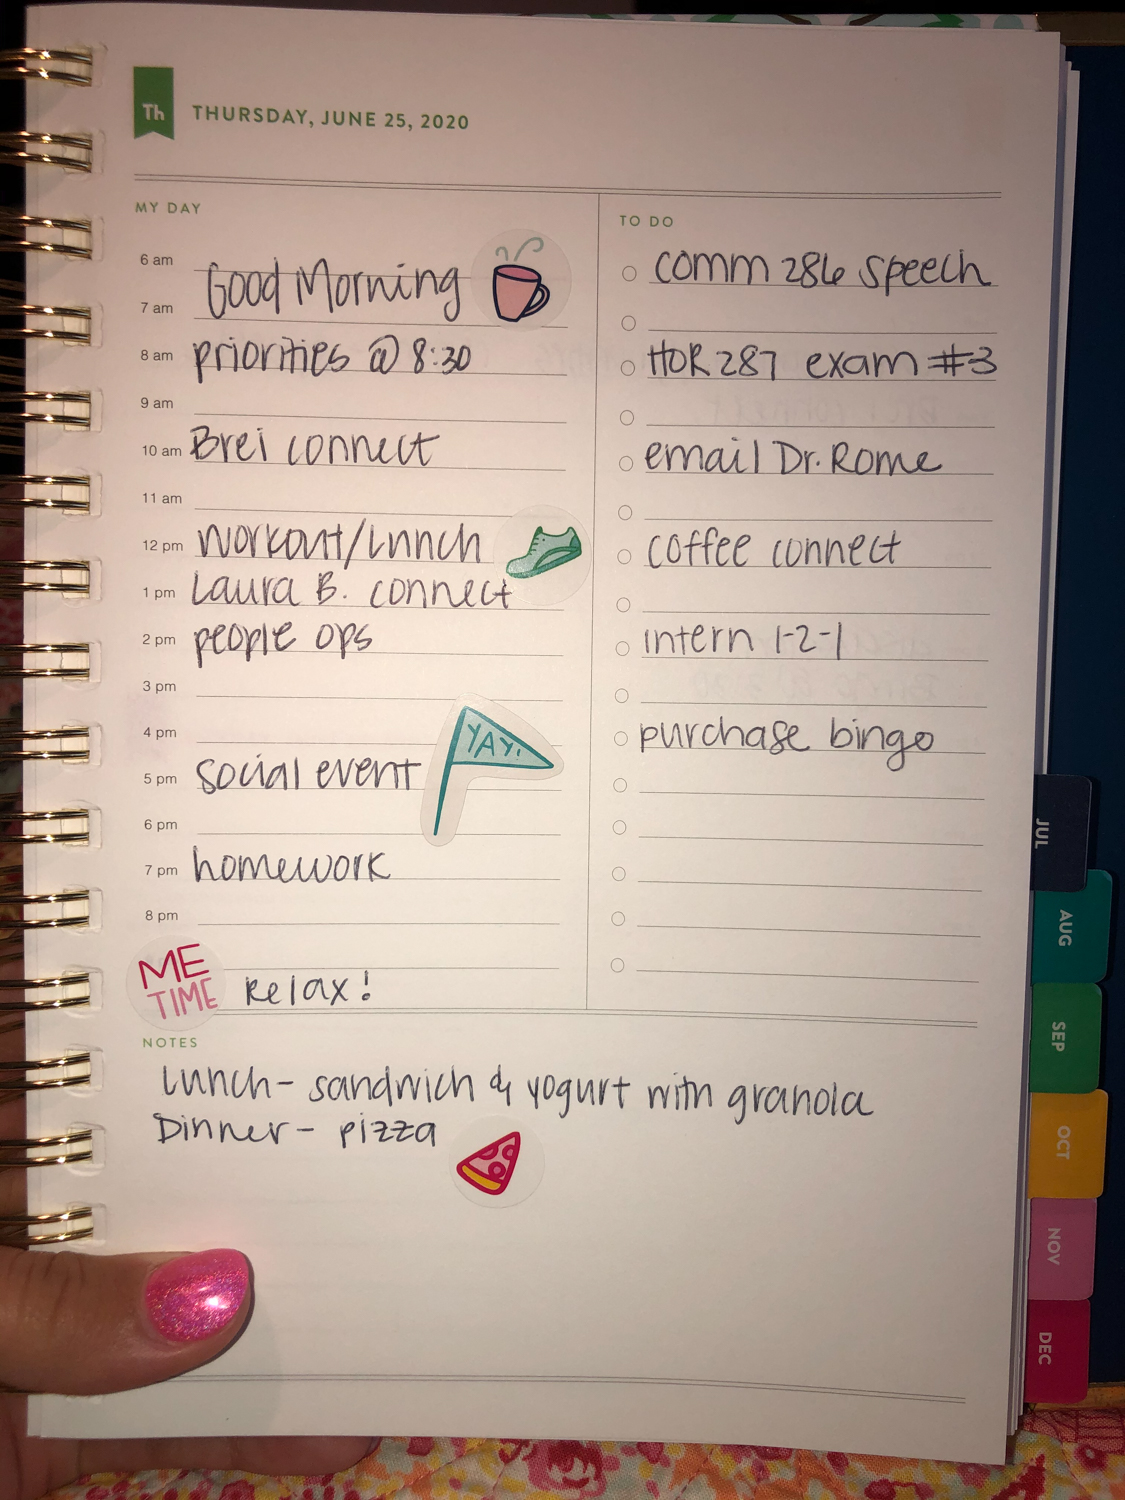 Th THURSDAY, JUNE 25, 2020
MY DAY
6 am
Good Morning
7 am
8 am priorities @ 8:30
9 am
10 am Brei connect
11 am
12 pm workout/lunch
1 pm Laura B. connect
2 pm people ops
3 pm
4 pm
YAY!
5 pm social event
6 pm
7 pm homework
8 pm
ME
TIME
Relax!
TO DO
comm 286 speech
HOR 287 exam #3
email Dr. Rome
coffee connect
intern 1-2-1
purchase bingo
NOTES
Lunch- sandwich & yogurt with granola
Dinner- pizza
JUL
AUG
SEP
OCT
NOV
DEC